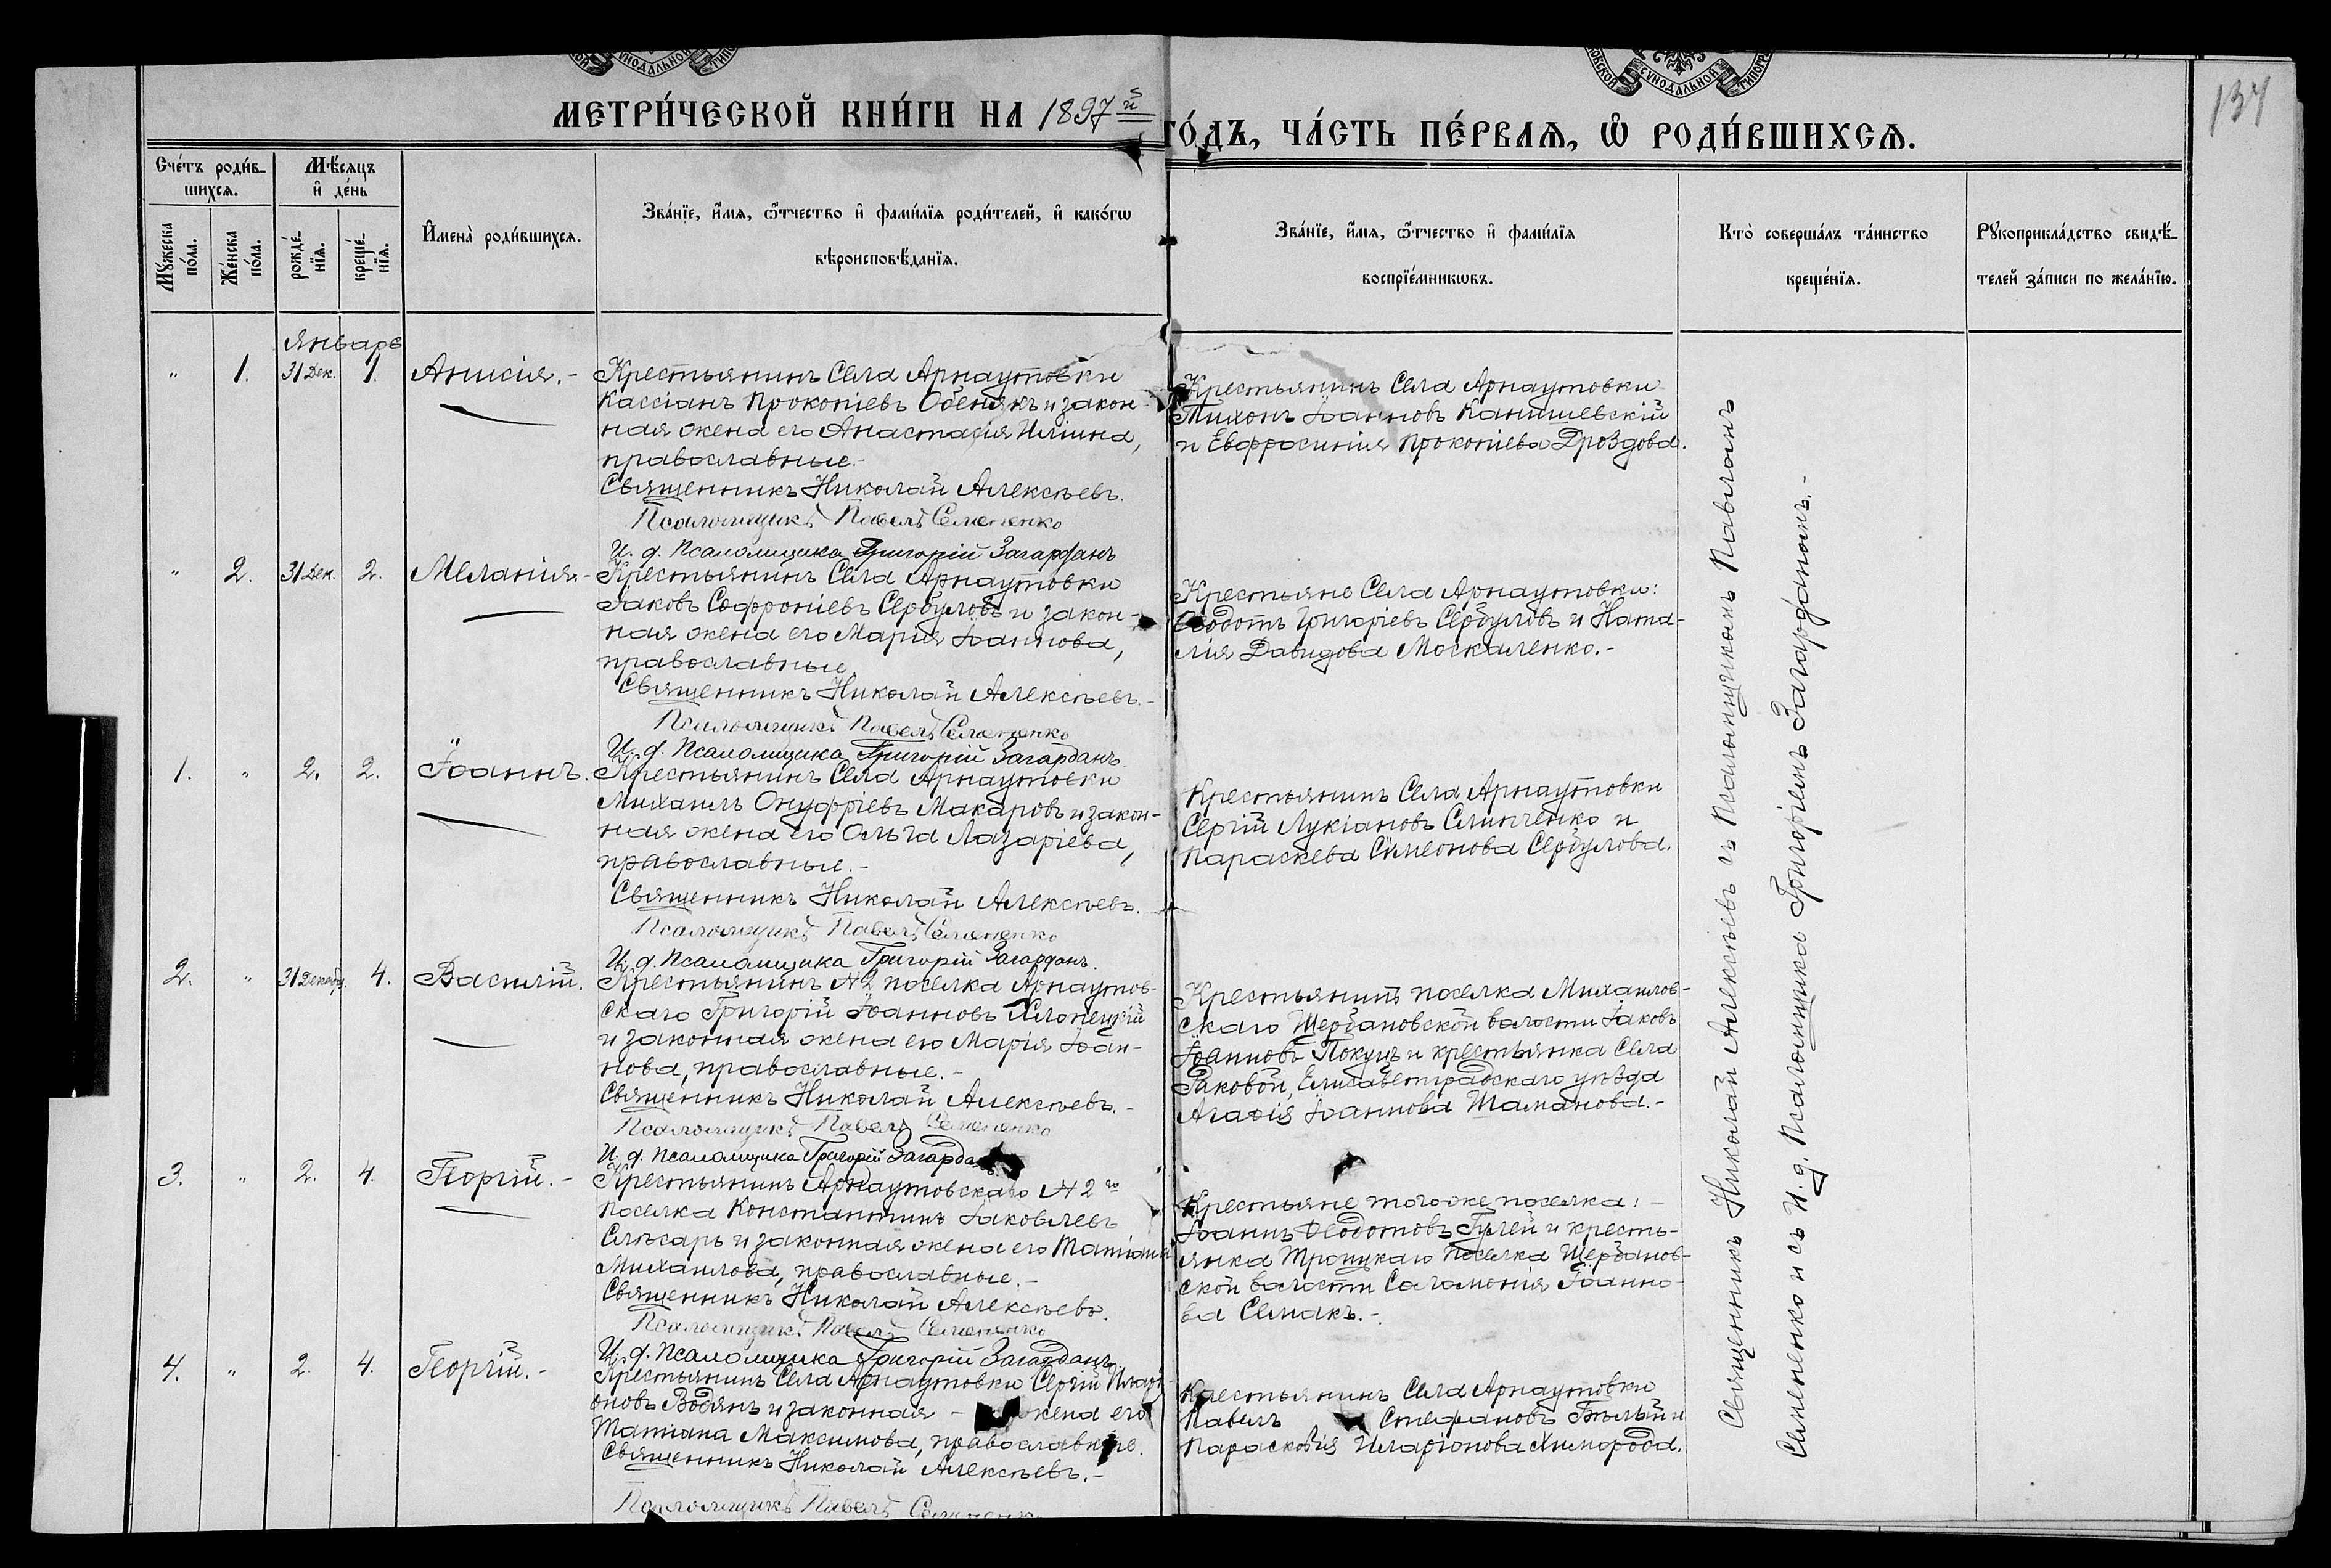 МЕТРИ́ЧЕСКОЙ КНИ́ГИ НА 1897 й ГО́ДЪ, ЧА́СТЬ ПЕ́РВАѦ, Ѡ РОДИ́ВШИХСѦ.
137
Сче́тъ роди́в-
шихсѧ.
Мꙋ́жеска по́ла.
Же́нска по́ла.
Мѣ́сѧцъ и де́нь
рожде́-
нїѧ.
креще́-
нїѧ.
Имена̀ роди́вшихсѧ.
Зва́нїе, и́мѧ, ѻ́тчество и фами́лїѧ роди́телей, и како́гѡ
вѣроисповѣ́данїѧ.
Зва́нїе, и́мѧ, ѻ́тчество и фами́лїѧ
воспрїе́мникѡвъ.
Кто̀ соверша́лъ та́инство
креще́нїѧ.
Рꙋкоприкла́дство свидѣ́-
телей за́писи по жела́нїю.
Январь
" 1. 31 Дек. 1. Анисія.-
Крестьянинъ Села Арнаутовки
Кассіанъ Прокопіевъ Обенякъ и закон-
ная жена его Анастасія Иліина,
православные.-
Священникъ Николай Алексѣевъ.
Псаломщикъ Павелъ Семененко
И. д. Псаломщика Григорій Загарданъ
Крестьянинъ Села Арнаутовки
Тихонъ Іоанновъ Канишевскій
и Евфросинія Прокопіева Дроздова.
" 2. 31 Дек. 2. Меланія.-
Крестьянинъ Села Арнаутовки
Іаковъ Софроніевъ Сербуловъ и закон-
ная жена его Марія Іоаннова,
православные,
Священникъ Николай Алексѣевъ.-
Псаломщикъ Павелъ Семененко
И. д. Псаломщика Григорій Загарданъ.
Крестьяне Села Арнаутовки:
Ѳеодотъ Григоріевъ Сербуловъ и Ната-
лія Давидова Москаленко.-
1. " 2. 2. Іоаннъ.
Крестьянинъ Села Арнаутовки
Михаилъ Онуфріевъ Макаровъ и закон-
ная жена его Ольга Лазаріева,
православные.-
Священникъ Николай Алексѣевъ.
Псаломщикъ Павелъ Семененко
И. д. Псаломщика Григорій Загарданъ.
Крестьянинъ Села Арнаутовки
Сергій Лукіановъ Слинченко и
Параскева Симеонова Сербулова.
2. " 31 Декабр. 4. Василій.
Крестьянинъ №2 поселка Арнаутов-
скаго Григорій Іоанновъ Хлопецкій
и законная жена его Марія Іоан-
нова, православные.-
Священникъ Николай Алексѣевъ.-
Псаломщикъ Павелъ Семененко
И. д. Псаломщика Григорій Загарданъ
Крестьянинъ поселка Михаилов-
скаго Щербановской волости Іаковъ
Іоанновъ Покуцъ и крестьянка Села
Раковой, Елисаветградскаго уѣзда
Агафія Іоаннова Шаманова.-
3. " 2. 4. Георгій.-
Крестьянинъ Арнаутовскаго № 2 го
поселка Константинъ Іаковлевъ
Слѣсарь и законная жена его Татіана
Михаилова, православные.-
Священникъ Николай Алексѣевъ.
Псаломщикъ Павелъ Семененко
И. д. Псаломщика Григорій Загарданъ.
Крестьяне тогоже поселка:-
Іоаннъ Ѳеодотовъ Гулей и кресть-
янка Троицкаго поселка Щербанов-
ской волости Саломонія Іоанно-
ва Семакъ.-
4. " 2. 4. Георгій.-
Крестьянинъ Села Арнаутовки Сергій Иларі-
оновъ Водянъ и законная - жена его
Татіана Максимова, православные.
Священникъ Николай Алексѣевъ.-
Псаломщикъ Павелъ Семененко
Крестьянинъ Села Арнаутовки
Павелъ Стефановъ Бѣлый и
Парасковія Иларіонова Химорода.
Священникъ Николай Алексѣевъ съ Псаломщикомъ Павломъ
Семененко и съ И. д. Псаломщика Григоріемъ Загарданомъ.-